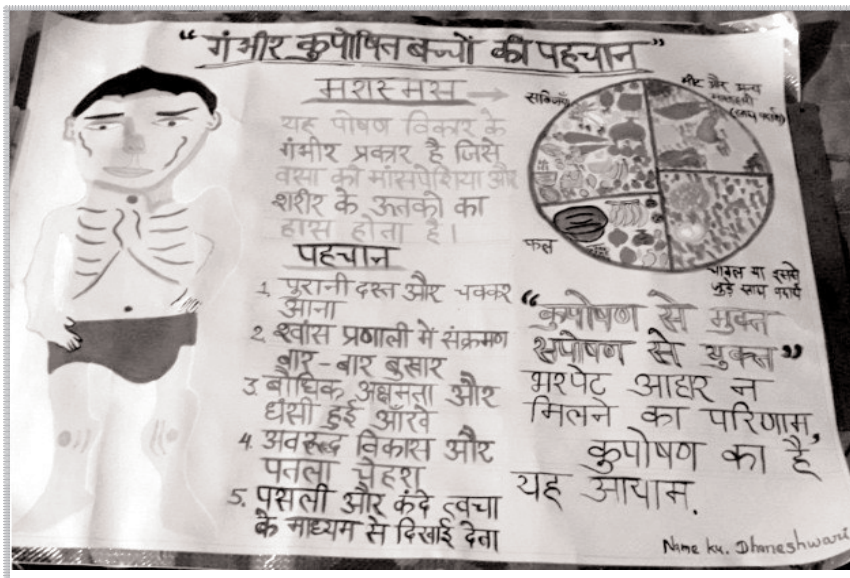 “गंभीर कुपोषित बच्चों की पहचान”
मरासमस →
यह पोषण विकार के
गंभीर प्रकार है जिसे
वसा की मांसपेशिया और
शरीर के ऊतको का
हास होता है।
पहचान
1. पुरानी दस्त और चक्कर
आना
2. श्वास प्रणाली में संक्रमण
बार-बार बुखार
3. बौधिक अक्षमता और
धंसी हुई आँखे
4. अवरुद्ध विकास और
पतला चेहरा
5. पसली और कंदे त्वचा
के माध्यम से दिखाई देना
सब्जियाँ
मीट और अन्य
(खाद्य पदार्थ)
फल
चावल या इससे
जुड़े खाद्य पदार्थ
“कुपोषण से मुक्त
सपोषण से युक्त”
भरपेट आहार न
मिलने का परिणाम,
कुपोषण का है
यह आयाम.
Name ku. Dhaneshwari